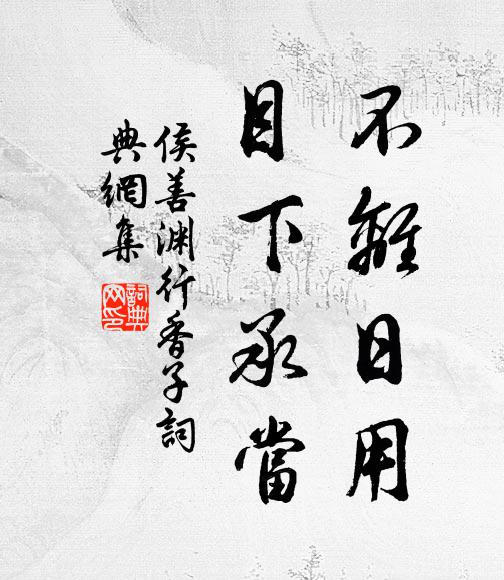 不離日用
目下承當
侯善渊行香子詞
典網集
詞典
网印